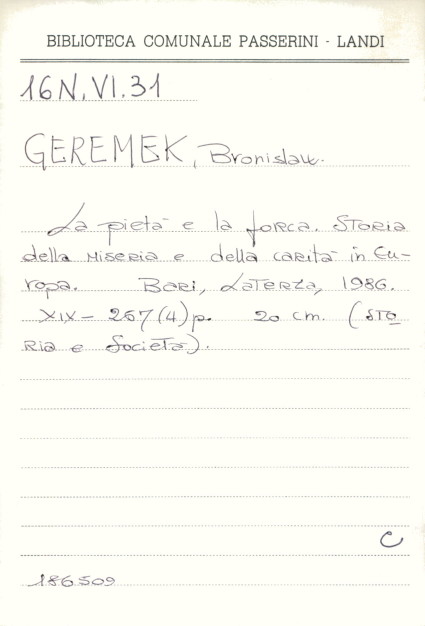 BIBLIOTECA COMUNALE PASSERINI - LANDI
16N.VI.31
GEREMEK, Bronislaw.
La pietà e la forca. Storia
della miseria e della carità in Eu-
ropa. Bari, Laterza, 1986.
XIX- 267(4)p. 20 cm. (Sto
ria e Società).
C
186509